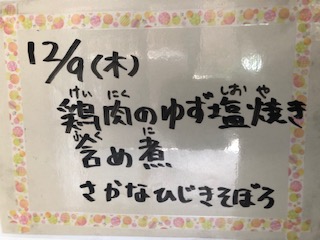 12/9(木)
けい にく しお や
鶏肉のゆず塩焼き
ふく に
含め煮
さかなひじきそぼろ